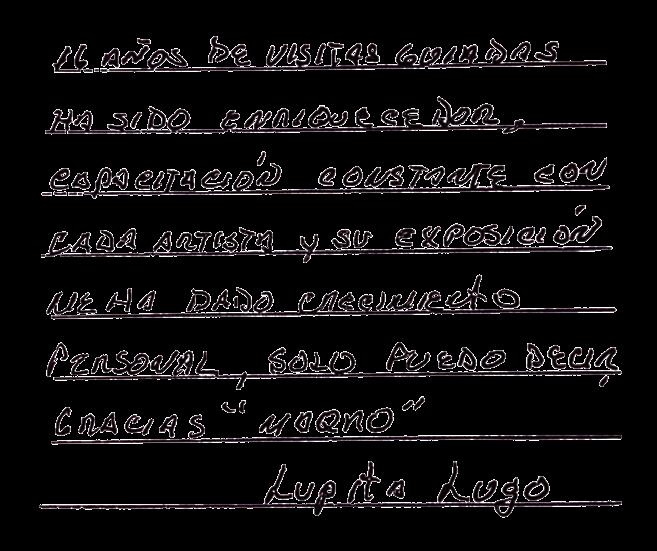 16 AÑOS DE VISITAS GUIADAS
HA SIDO ENRIQUECEDOR,
CAPACITACIÓN CONSTANTE CON
CADA ARTISTA y SU EXPOSICIÓN
ME HA DADO CRECIMIENTO
PERSONAL, SOLO PUEDO DECIR
GRACIAS "MAQRO"
Lupita Lugo